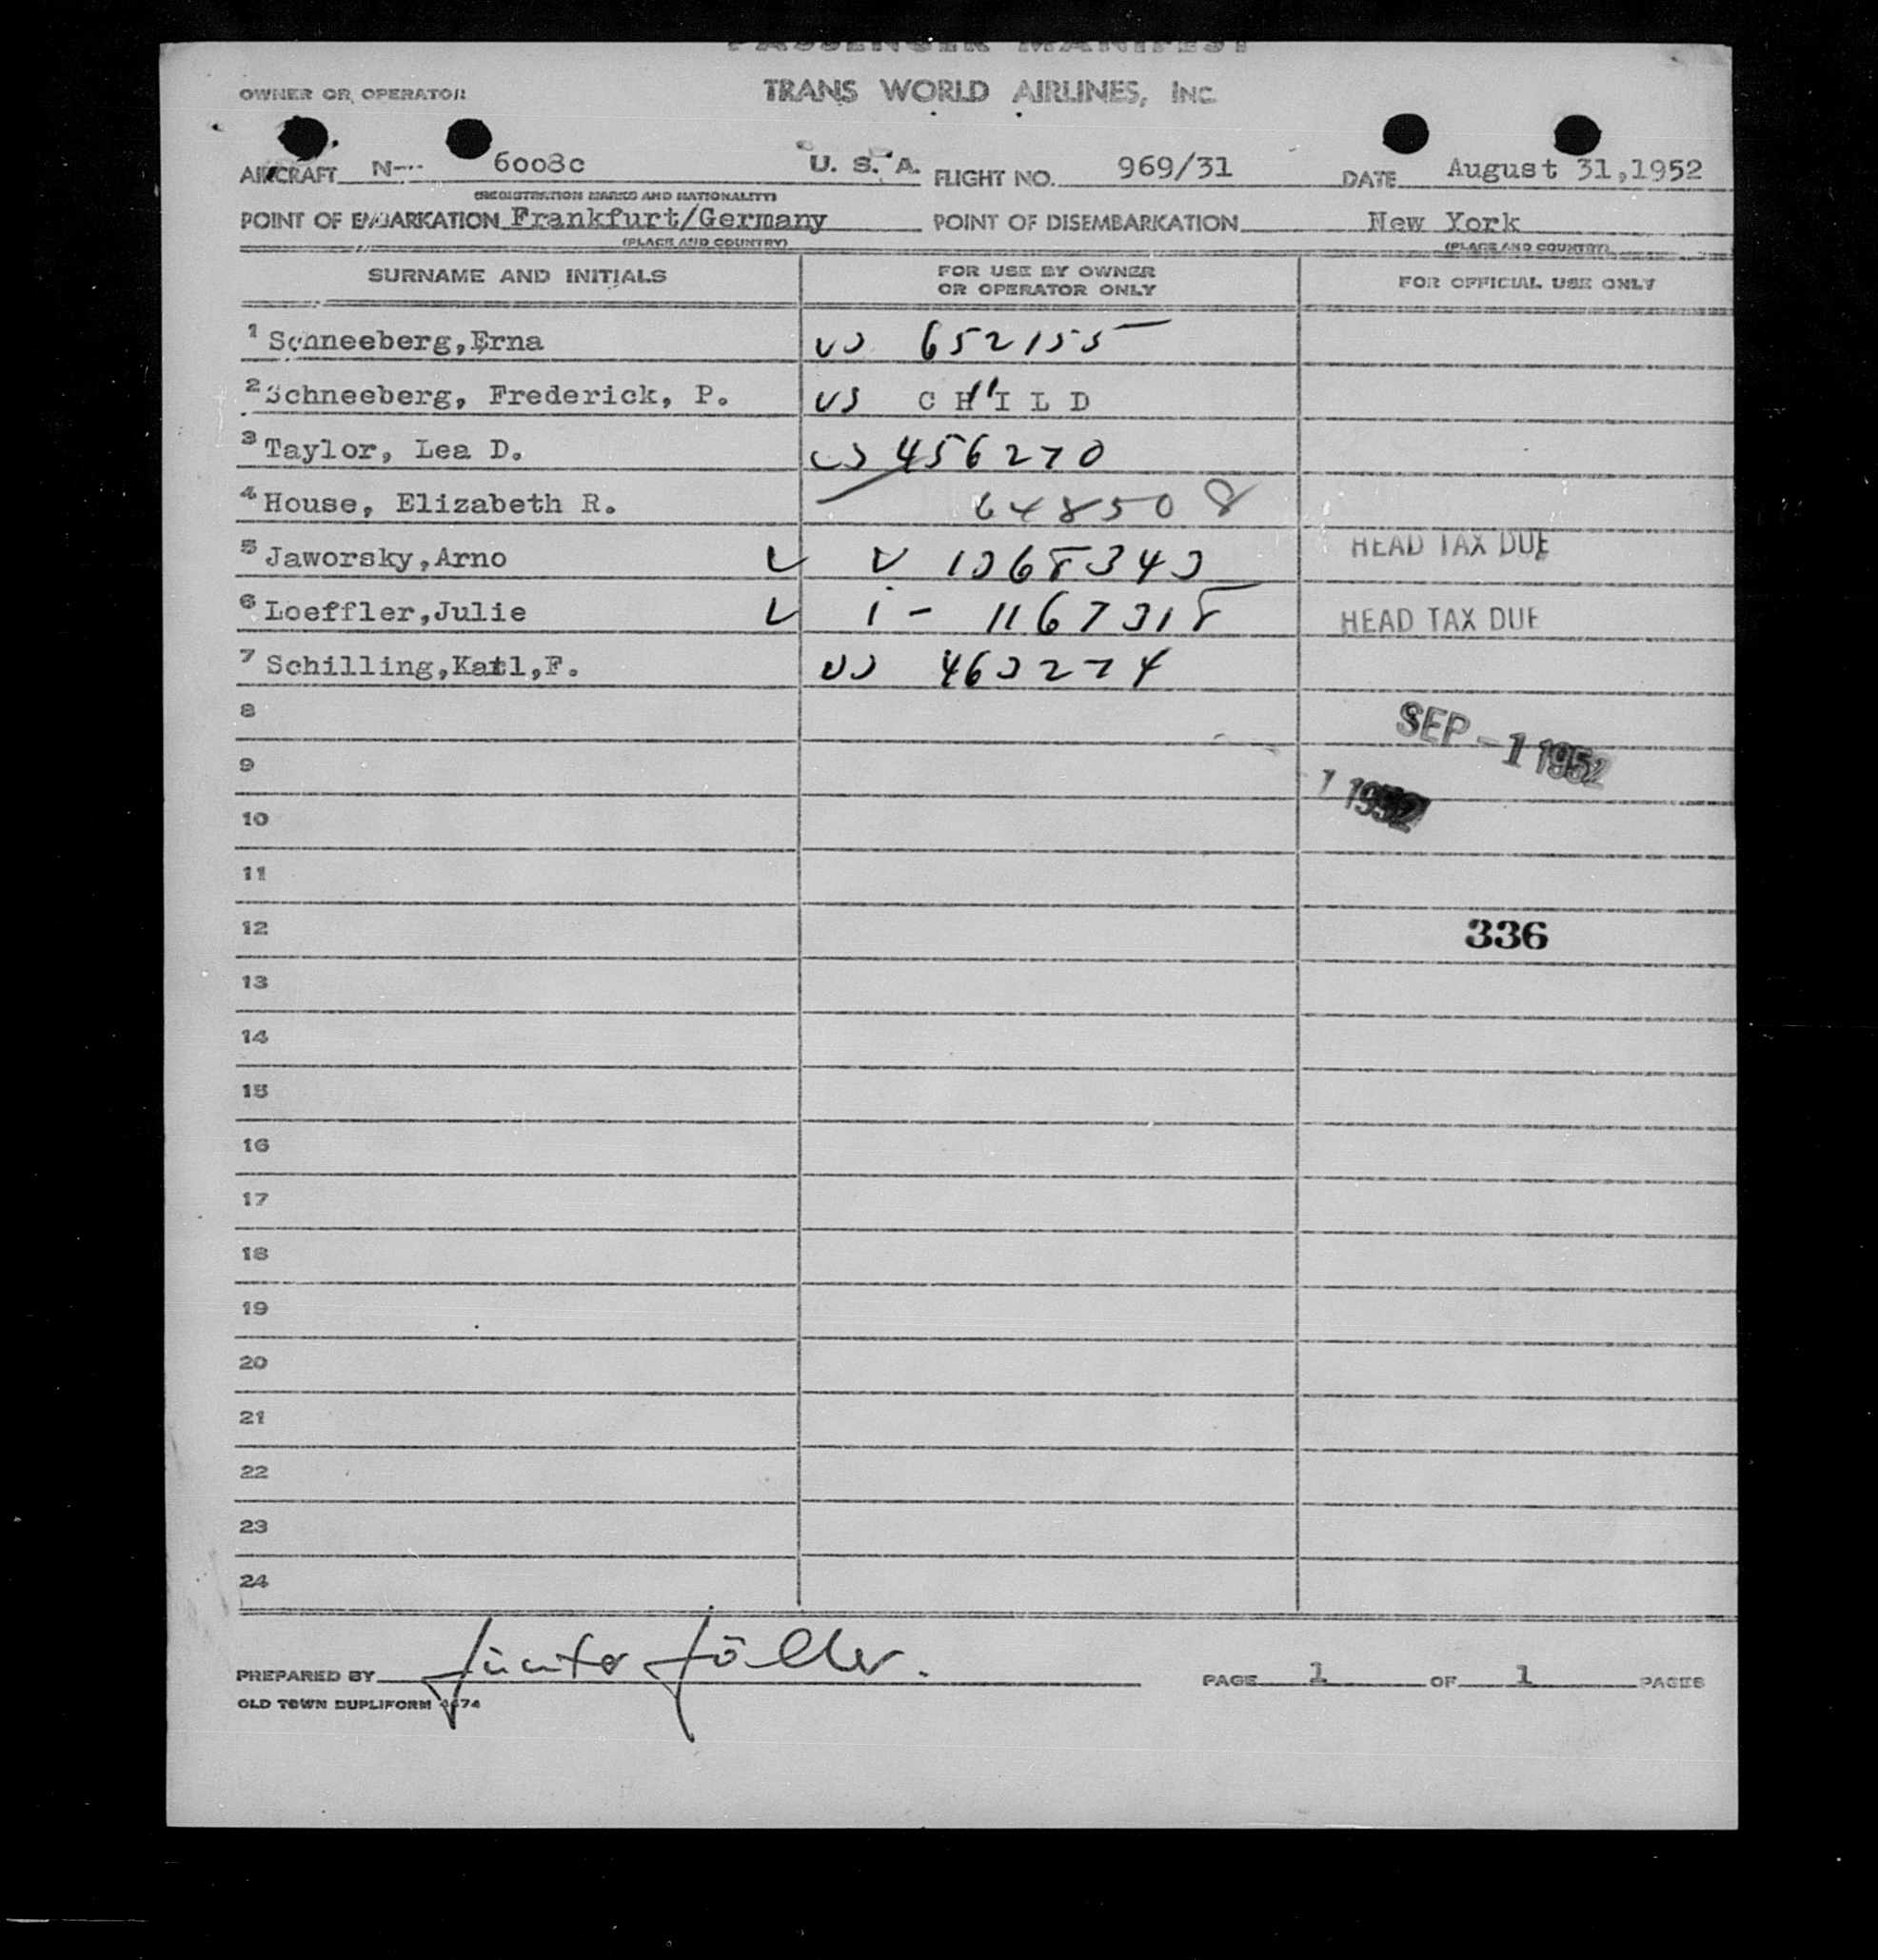 PASSENGER MANIFEST
OWNER OR OPERATOR TRANS WORLD AIRLINES, INC.
AIRCRAFT N-- 6008c U. S. A. FLIGHT NO. 969/31 DATE August 31,1952
(REGISTRATION MARKS AND NATIONALITY)
POINT OF EMBARKATION Frankfurt/Germany POINT OF DISEMBARKATION New York
(PLACE AND COUNTRY) (PLACE AND COUNTRY)
SURNAME AND INITIALS FOR USE BY OWNER OR OPERATOR ONLY FOR OFFICIAL USE ONLY
1 Schneeberg,Erna US 652155
2 Schneeberg, Frederick, P. US " CHILD
3 Taylor, Lea D. US 456270
4 House, Elizabeth R. 648508
5 Jaworsky,Arno V V 1368343 HEAD TAX DUE
6 Loeffler,Julie V i - 1167318 HEAD TAX DUE
7 Schilling,Karl,F. US 463274
8 SEP -1 1952
9 1 1952
10
11
12 336
13
14
15
16
17
18
19
20
21
22
23
24
PREPARED BY PAGE 1 OF 1 PAGES
OLD TOWN DUPLIFORM